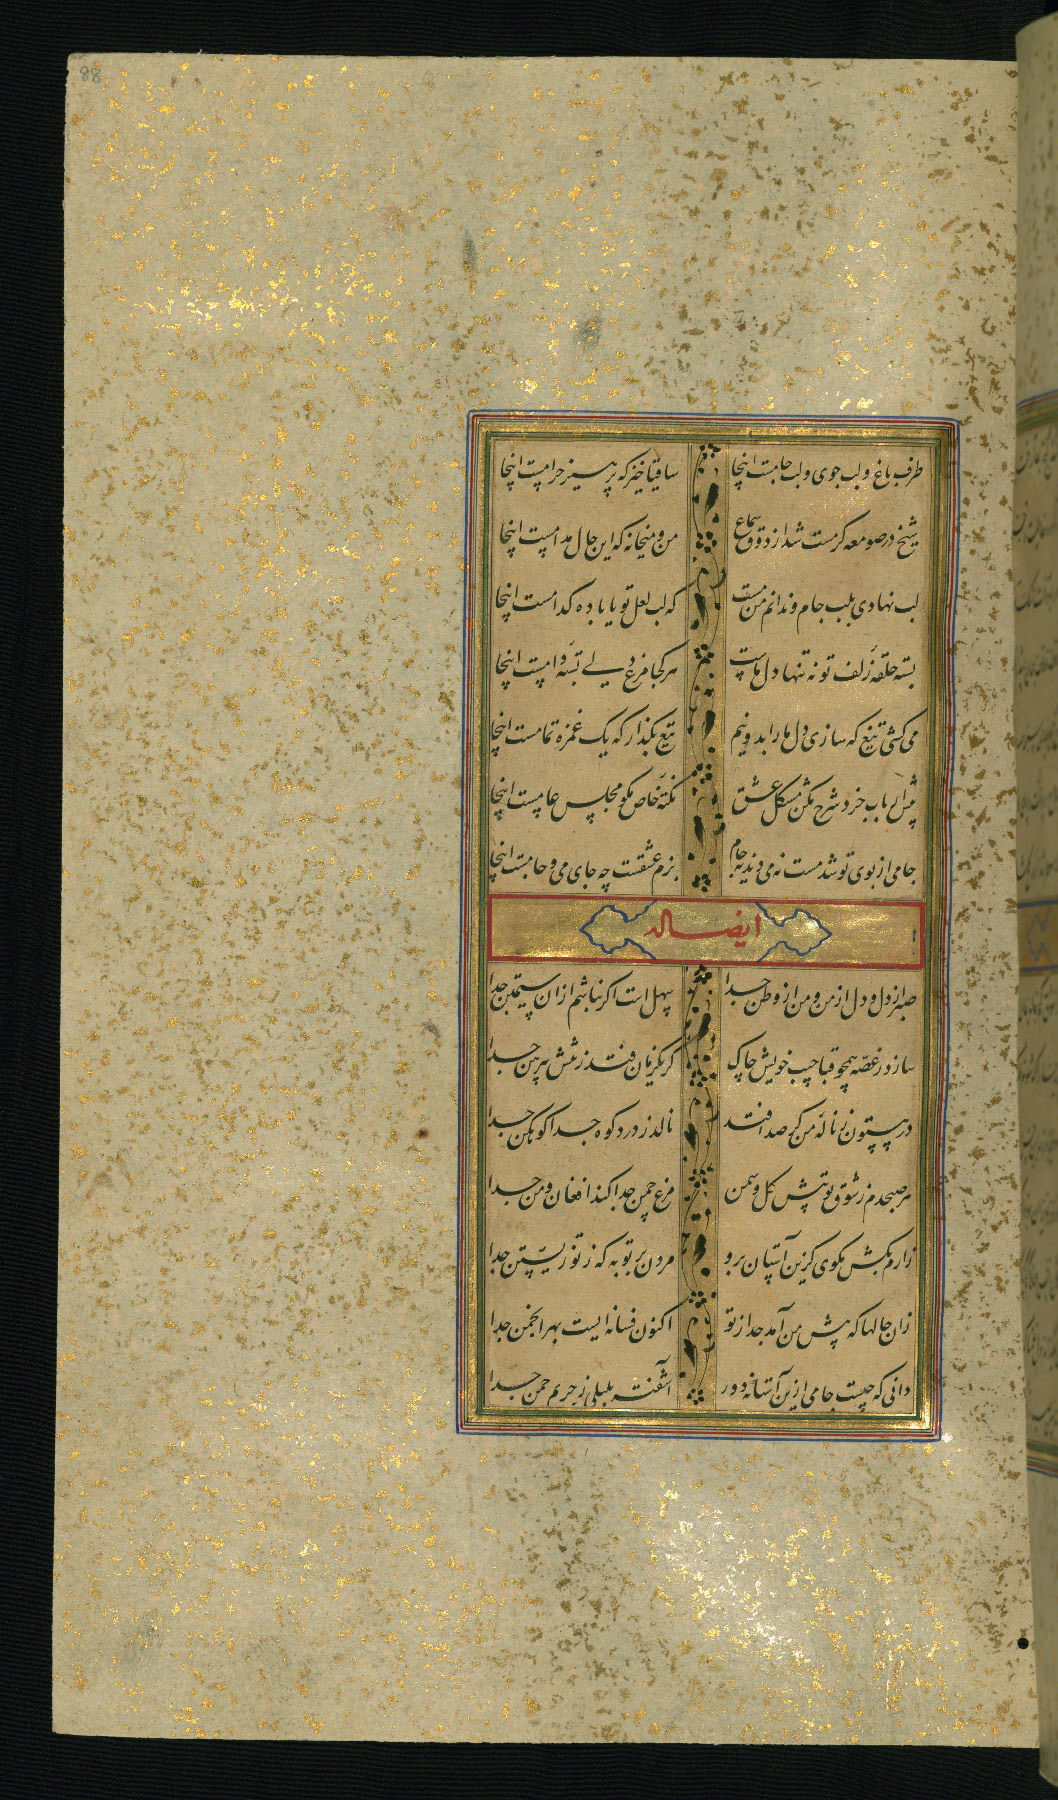 88
طرف باغ و لب جوی و لب جامست اینجا ساقیا خیز که پرهیز حرامست اینجا
شیخ در صومعه گر مست شد از ذوق سماع من و میخانه که این حال مدامست اینجا
لب نهادی بلب جام و ندانم من مست که لب لعل تو یا باده کدامست اینجا
بسته حلقه زلف تو نه تنها دل ماست هر کجا مرغ دلی بسته دامست اینجا
می کشی تیغ که سازی دل ما را بدو نیم تیغ بگذار که یک غمزه تمامست اینجا
پیش ارباب خرد شرح مکن مشکل عشق نکته خاص مگو مجلس عامست اینجا
جامی از بوی تو شد مست نه می دیده نه جام بزم عشقست چه جای می و جامست اینجا
ایضا له
صبر از دل و دل از من و من از وطن جدا سهل است اگر نباشم ازان سیمتن جدا
سازد ز غصه همچو قبا جیب خویش چاک گر یکزمان فتد ز تنش پیرهن جدا
در بیستون ز ناله من گر صدا فتد نالد ز درد کوه جدا کوهکن جدا
هر صبحدم ز شوق تو پیش گل و سمن مرغ چمن جدا کند افغان و من جدا
زارم بکش مگوی کزین آستان برو مردن بر تو به که ز تو زیستن جدا
زان حالها که پیش من آمد جدا ز تو اکنون فسانه ایست بهر انجمن جدا
دانی که چیست جامی ازین آستانه دور آشفته بلبلی ز حریم چمن جدا